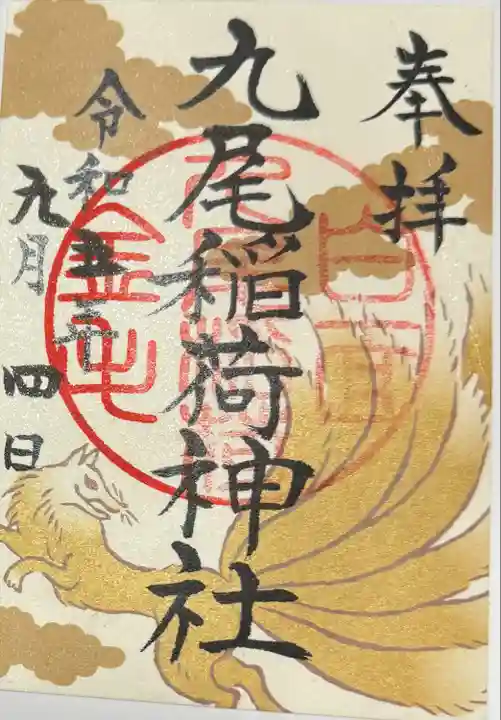 奉拝
九尾稲荷神社
令和五年
九月四日